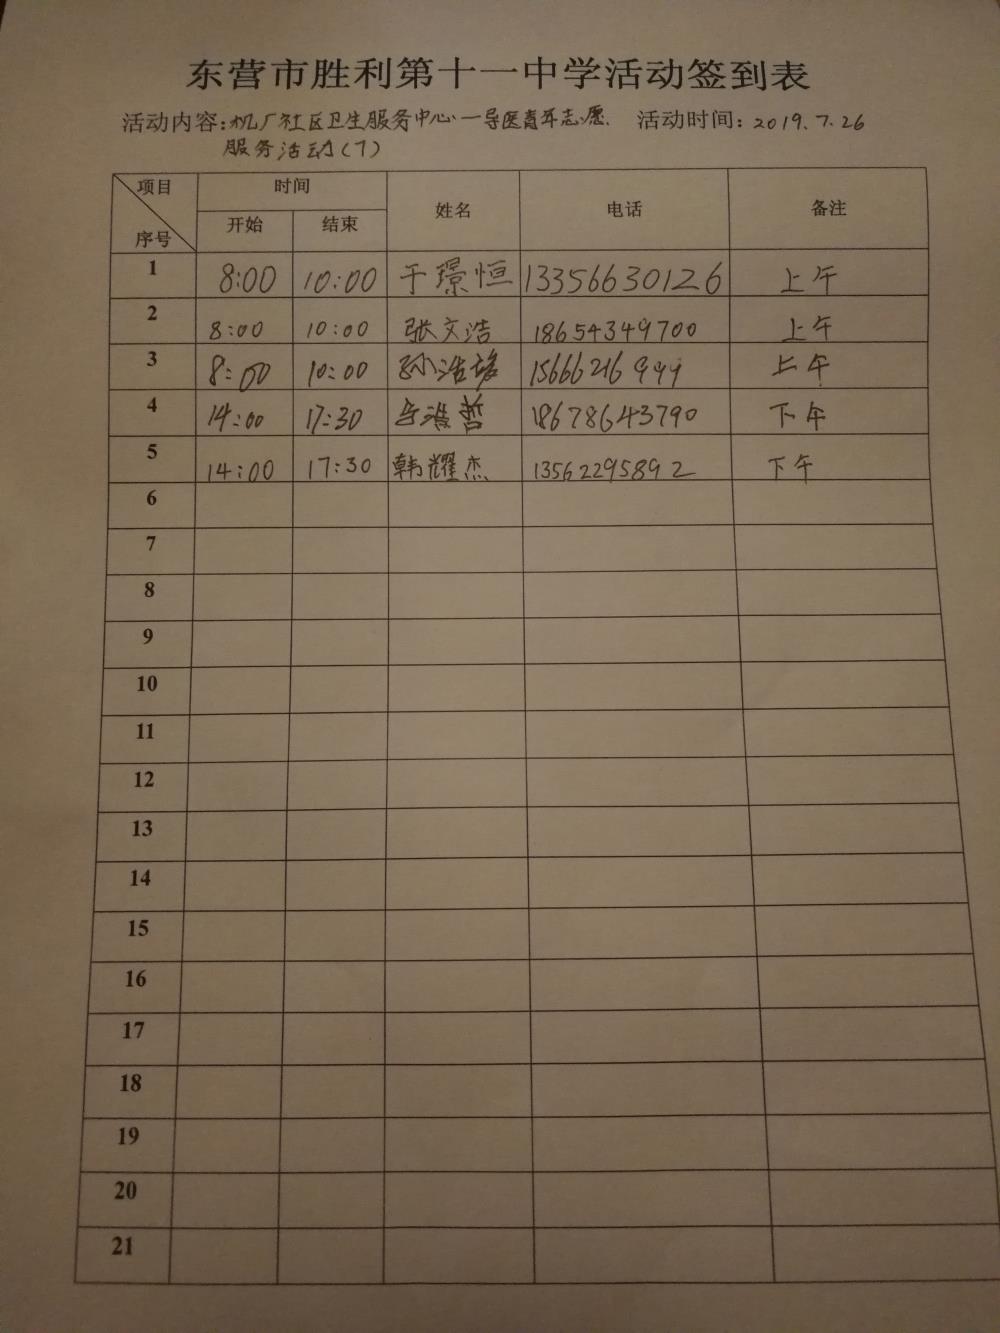 东营市胜利第十一中学活动签到表
活动内容:机厂社区卫生服务中心一导医青年志愿 活动时间: 2019.7.26
服务活动(7)
项目 时间 姓名 电话 备注
序号 开始 结束
1 8:00 10:00 于璟恒 13356630126 上午
2 8:00 10:00 张文浩 18654349700 上午
3 8:00 10:00 孙浩 15666216999 上午
4 14:00 17:30 哲 18678643790 下午
5 14:00 17:30 韩耀杰 13562295892 下午
6
7
8
9
10
11
12
13
14
15
16
17
18
19
20
21